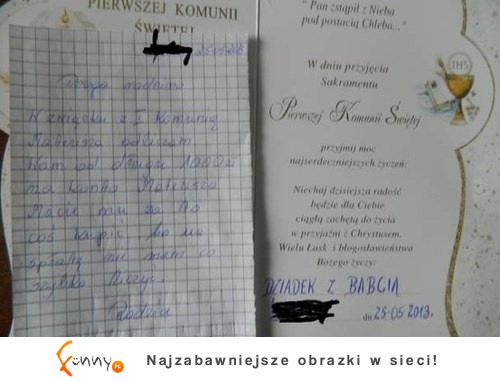 PIERWSZEJ KOMUNII
ŚWIĘTEJ
Droga rodzino
W związku z I Komunią
Mateusza odliczam
Wam od długu 1000zł
na konto Mateusza
Macie mu za to
coś kupić, bo na
spłatę nie mam co
szybko liczyć.
" Pan zstąpił z Nieba
pod postacią Chleba..."
IHS
W dniu przyjęcia
Sakramentu
Pierwszej Komunii Świętej
przyjmij moc
najserdeczniejszych życzeń:
Niechaj dzisiejsza radość
będzie dla Ciebie
ciągłą zachętą do życia
w przyjaźni z Chrystusem.
Wielu Łask i błogosławieństwa
Bożego życzy:
DZIADEK Z BABCIĄ
dn 25-05-2013.
Funny.PL
Najzabawniejsze obrazki w sieci!